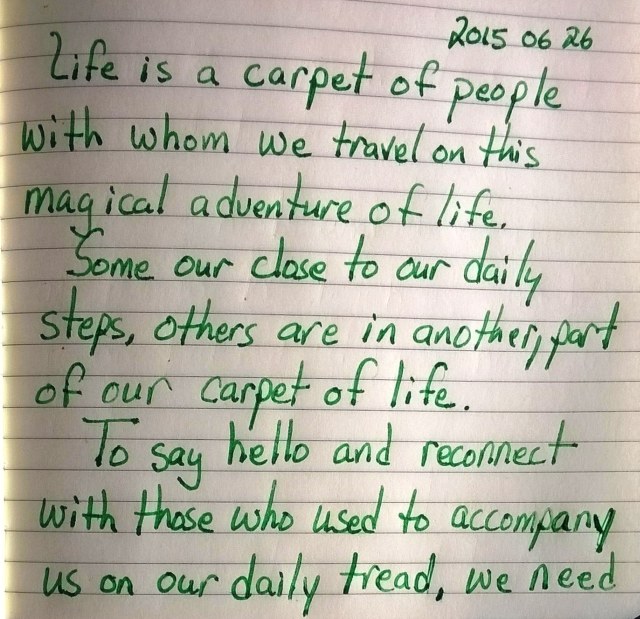 2015 06 26
Life is a carpet of people
with whom we travel on this
magical adventure of life.
Some our close to our daily
steps, others are in another, part
of our carpet of life.
To say hello and reconnect
with those who used to accompany
us on our daily tread, we need